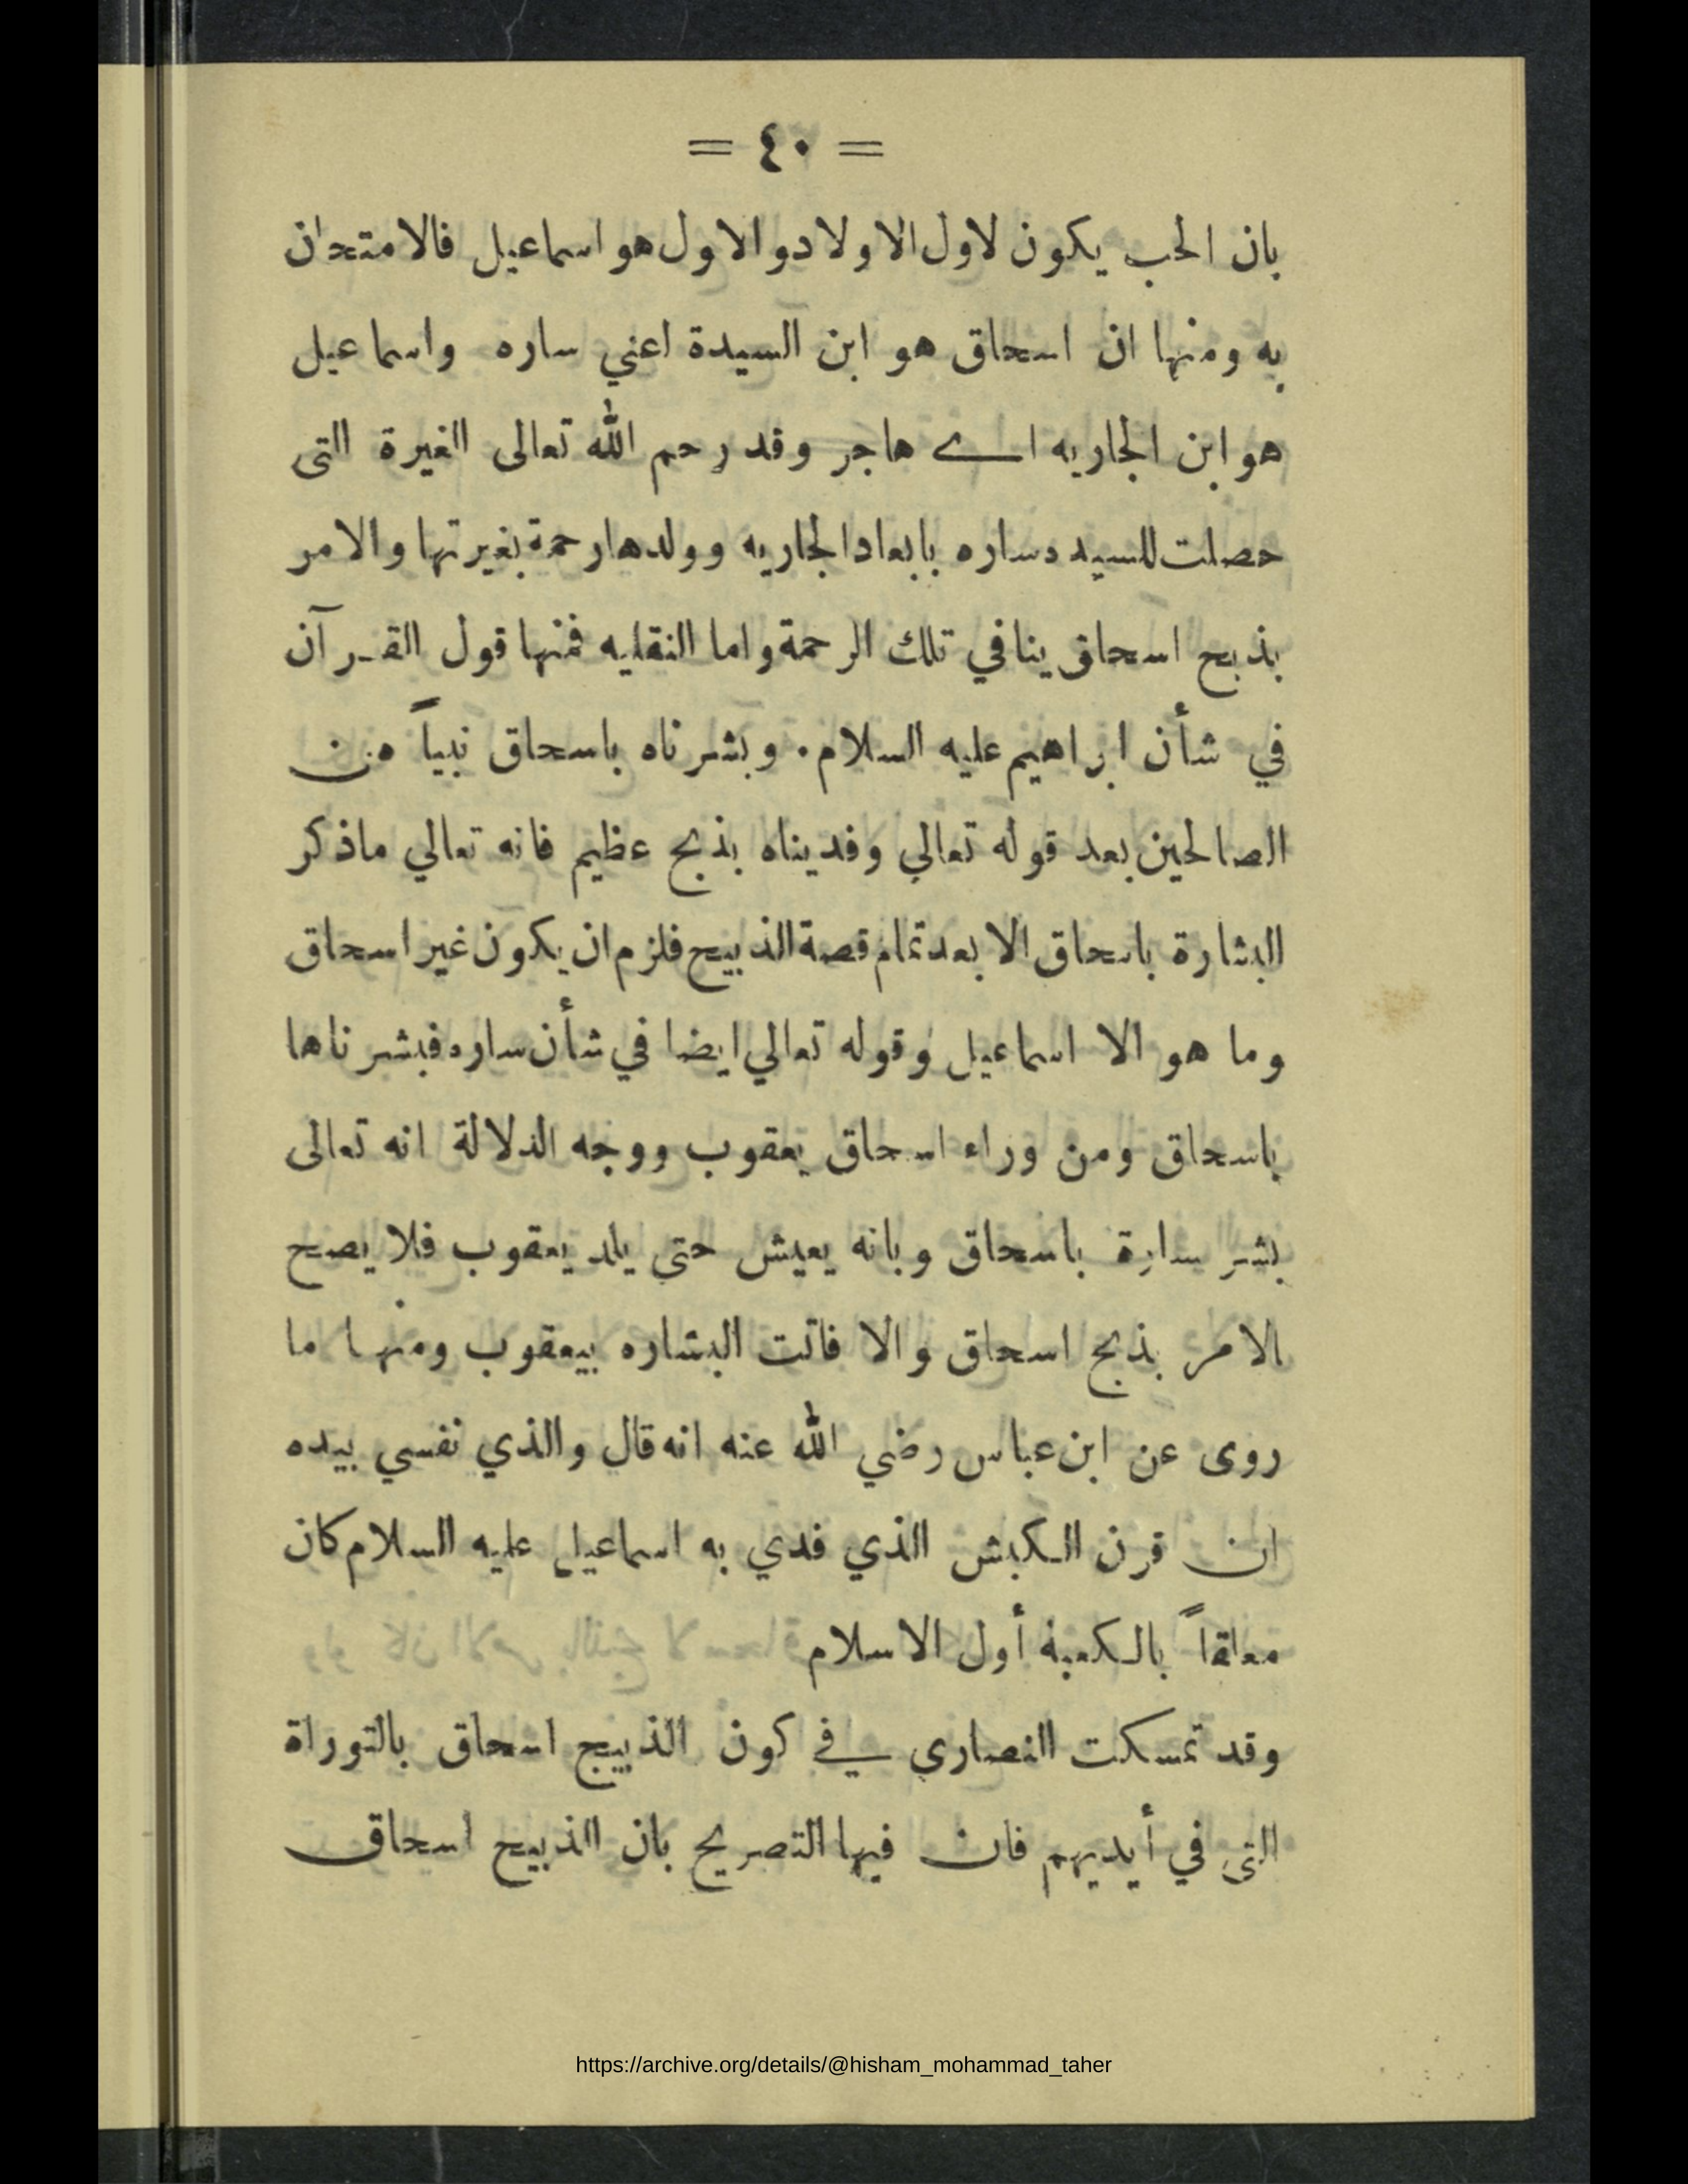 = ٤٠ =
بان الحب يكون لاول الاولاد والاول هو اسماعيل فالامتحان
به ومنها ان اسحاق هو ابن السيدة اعني ساره واسماعيل
هو ابن الجاريه اے هاجر وقد رحم الله تعالى الغيرة التى
حصلت للسيده ساره بابعاد الجاريه وولدها رحمة بغيرتها والامر
بذبح اسحاق ينافي تلك الرحمة واما النقليه فمنها قول القرآن
في شأن ابراهيم عليه السلام. وبشرناه باسحاق نبياً من
الصالحين بعد قوله تعالي وفديناه بذبح عظيم فانه تعالي ماذكر
البشارة باسحاق الا بعد تمام قصة الذبيح فلزم ان يكون غير اسحاق
وما هو الا اسماعيل وقوله تعالي ايضا في شأن ساره فبشرناها
باسحاق ومن وراء اسحاق يعقوب ووجه الدلالة انه تعالى
بشر سارة باسحاق وبانه يعيش حتي يلد يعقوب فلا يصح
الامر بذبح اسحاق والا فاتت البشاره بيعقوب ومنها ما
روى عن ابن عباس رضي الله عنه انه قال والذي نفسي بيده
ان قرن الكبش الذي فدي به اسماعيل عليه السلام كان
معلقاً بالكعبة أول الاسلام
وقد تمسكت النصاري في كون الذبيح اسحاق بالتوراة
التى في أيديهم فان فيها التصريح بان الذبيح اسحاق
https://archive.org/details/@hisham_mohammad_taher